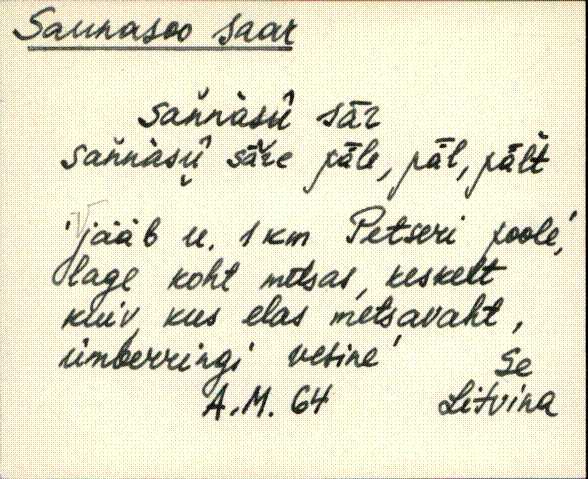 Saunasoo saar
sän̆nàsū̂ sār
sän̆nàsū̬̂ sāře pāle, pāl, pāl̆t
'jääb u. 1 km Petseri poole,'
lage koht metsas, keskelt
kuiv, kus elas metsavaht,
ümberringi vesine'
Se
A.M. 64 Litvina